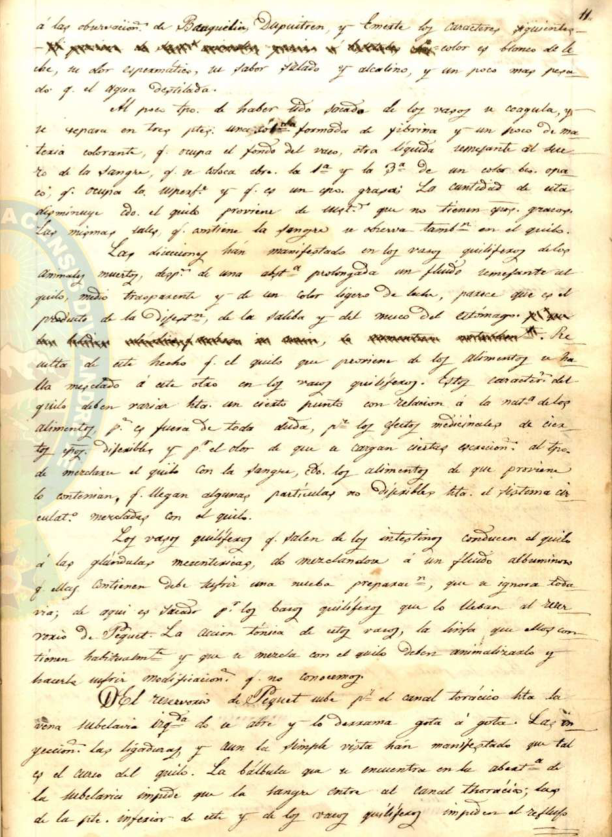 11.
á las observacion.s de Bauquelin, Dupuitren, y Emerte los caracteres siguientes
color es blanco de le
che, su olor espermatico, su sabor salado y alcalino, y un poco mas pesa
do q. el agua destilada.
Al poco tpo. de haber sido sacado de los vasos se coagula, y
se separa en tres ptes. una formada de fibrina y un poco de ma
teria colorante, q. ocupa el fondo del vaso, otra liquida semejante al sue
ro de la sangre, q. se coloca sbre. la 1.a y la 3.a de un color bco. opa
co, q. ocupa la superf.e y q. es un grasa; La cantidad de esta
disminuye do. el quilo proviene de sust.s que no tienen grasas.
Las mismas sales, q. contiene la sangre se observa tamb.n en el quilo.
Las disecciones han manifestado en los vasos quiliferos de los
animales muertos, desp.s de una abst.a prolongada un fluido semejante al
quilo, medio trasparente y de un color ligero de leche, parece que es el
producto de la Digest.n, de la saliba y del muco del estomago. Re
sulta de este hecho q. el quilo que proviene de los alimentos se ha
lla mezclado á este otro en los vasos quiliferos. Estos caracter.s del
quilo deben variar hta. un cierto punto con relasion á la nat.a de los
alimentos p.s es fuera de toda duda, p.r los efectos medicinales de cier
tos digesibles y p.r el olor de que se cargan ciertas excrecion.s al tpo.
de mezclarse el quilo con la sangre, do. los alimentos de que proviene
lo contenian, q. llegan algunas particulas no digesibles hta. el sistema cir
culat.o mezcladas con el quilo.
Los vasos quiliferos q. salen de los intestinos conducen el quilo
á las glandulas mesentericas, do mezclandose á un fluido albuminoso
q. ellas contienen debe sufrir una nueba preparac.n, que se ignora toda
via; de aqui es sacado p.r los basos quiliferos que lo lleban al reser
vorio de Pequet. La accion tonica de estos vasos, la linfa que ellos con
tienen habitualm.te y que se mezcla con el quilo deben animalizarlo y
hacerle sufrir modificacion.s q. no conocemos.
El reservorio de Pequet sube p.r el canal torácico hta la
vena subclavia izq.da do se abre y lo derrama gota á gota. Las in
yeccion.s las ligaduras, y aun la simple vista han manifestado que tal
es el curso del quilo. La bálbula que se encuentra en la abert.a de
la subclavia impide que la sangre entre al canal thoracico; las
de la pte. inferior de este y de los vasos quiliferos impiden el reflujo